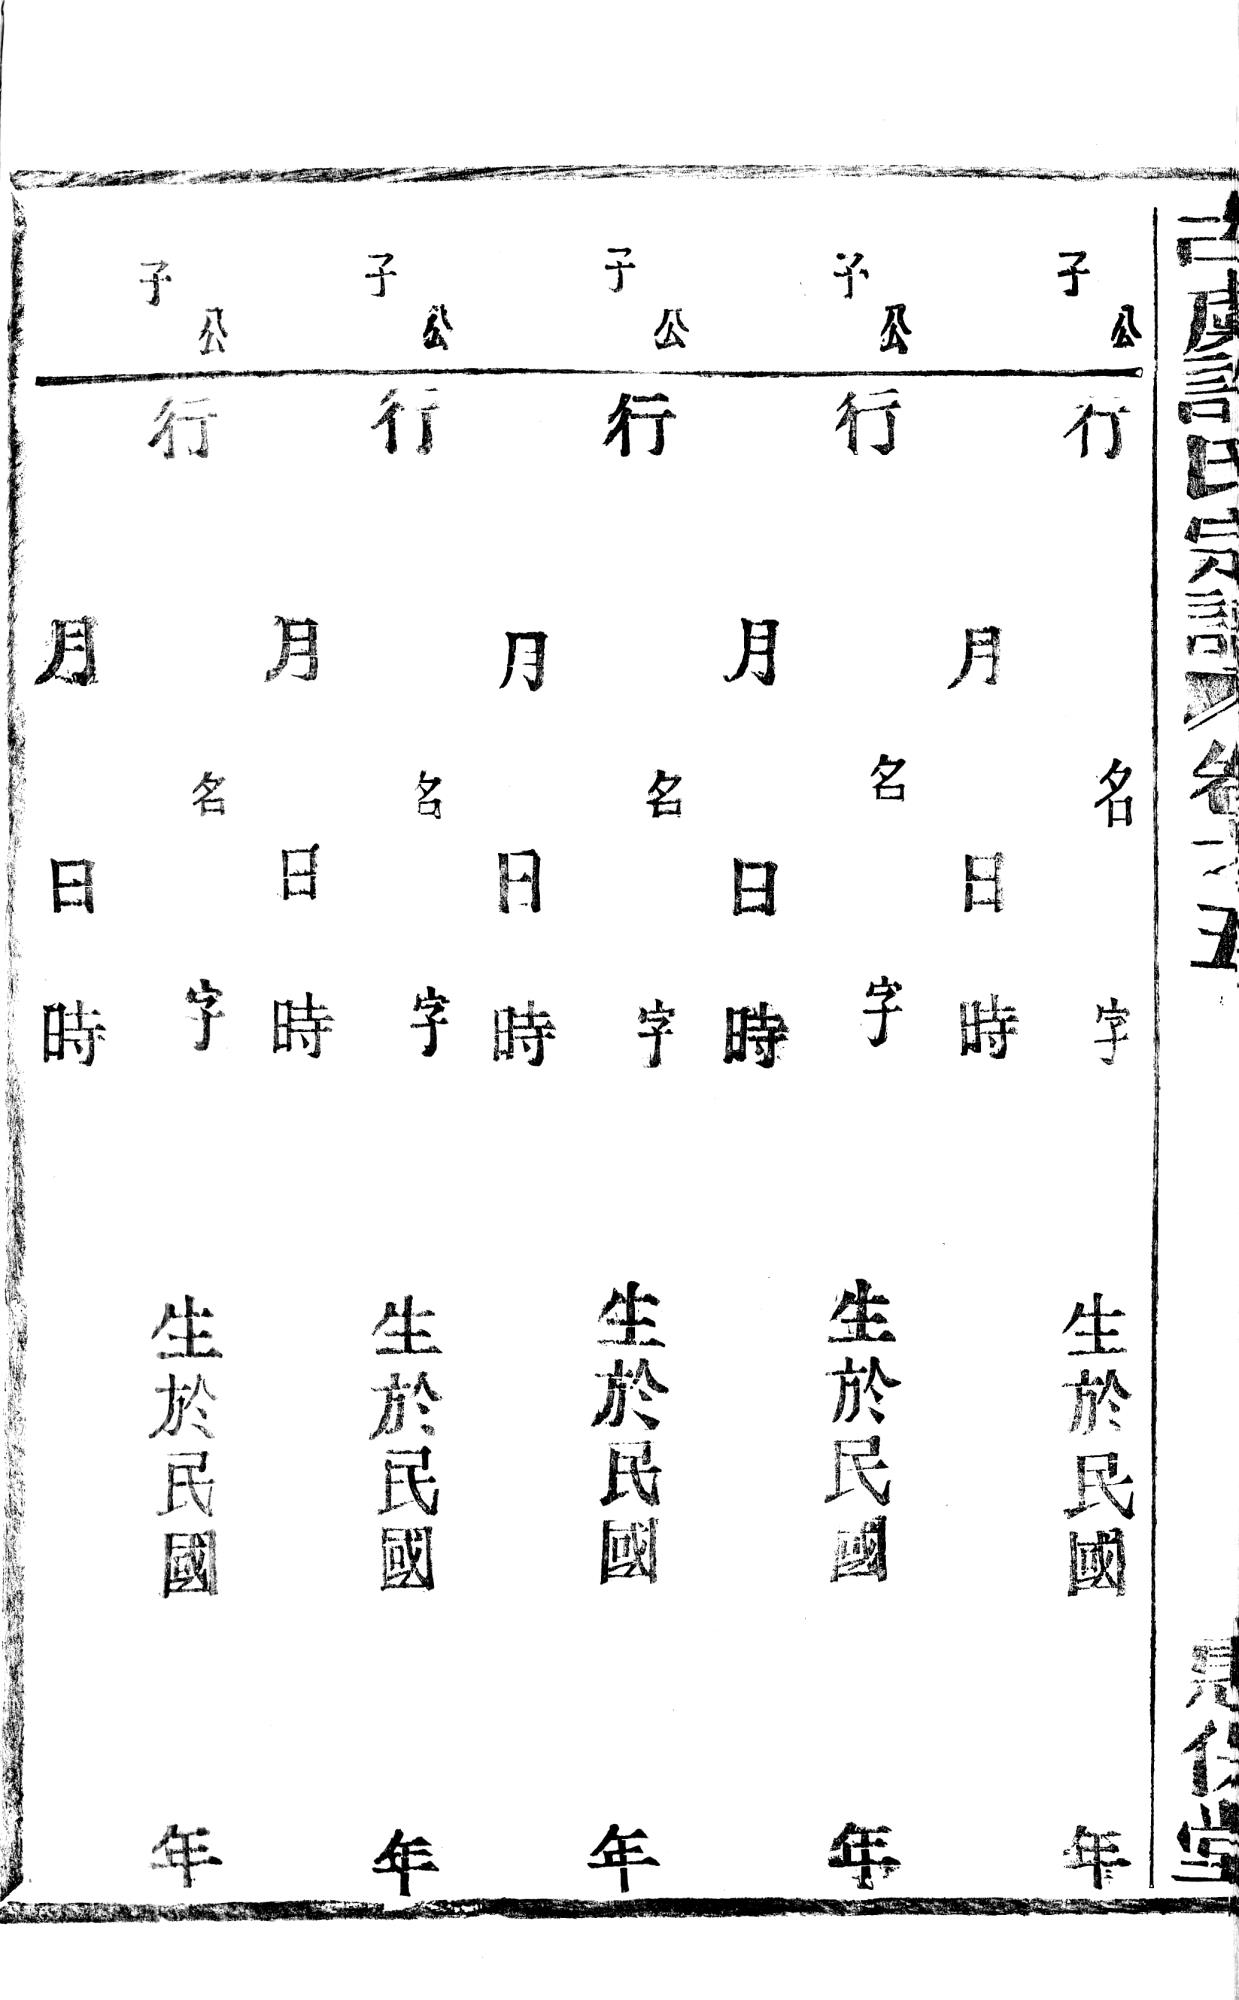 氏宗譜卷五堂
公
子
行 名 字 生於民國 年
月 日 時
公
子
行 名 字 生於民國 年
月 日 時
公
子
行 名 字 生於民國 年
月 日 時
公
子
行 名 字 生於民國 年
月 日 時
公
子
行 名 字 生於民國 年
月 日 時